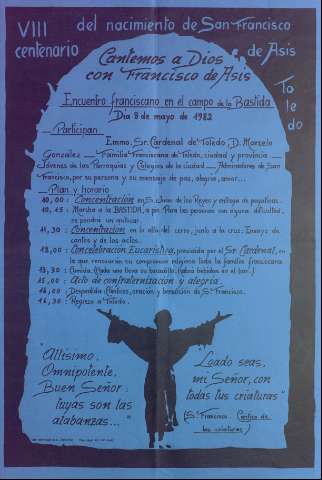 VIII del nacimiento de San Francisco
centenario de Asís
Toledo
Cantemos a Dios
con Francisco de Asís
Encuentro franciscano en el campo de la Bastida
Día 9 de mayo de 1982
- Participan
Emmo. Sr. Cardenal de Toledo, D. Marcelo
González - Familia Franciscana de Toledo, ciudad y provincia -
Jóvenes de las Parroquias y Colegios de la ciudad - Admiradores de San
Francisco, por su persona y su mensaje de paz, alegría, amor...
- Plan y horario
10,00 : Concentración en S. Juan de los Reyes y entrega de pegatinas.
10,45 : Marcha a la BASTIDA, a pie. Para las personas con alguna dificultad,
se pondrá un autocar.
11,30 : Concentración en lo alto del cerro, junto a la cruz. Ensayo de
cantos y de los actos.
12,00 : Concelebración Eucarística, presidida por el Sr. Cardenal, en
la que renovarán su compromiso religioso toda la familia franciscana.
13,30 : Comida. (Cada uno lleva su bocadillo. Habrá bebidas en el bar.)
15,00 : Acto de confraternización y alegría.
16,00 : Despedida. Cánticos, oración y bendición de S. Francisco.
16,30 : Regreso a Toledo.
"Altísimo,
Omnipotente,
Buen Señor:
tuyas son las
alabanzas..."
"Loado seas,
mi Señor, con
todas tus criaturas"
(S. Francisco. Cántico de
las criaturas)